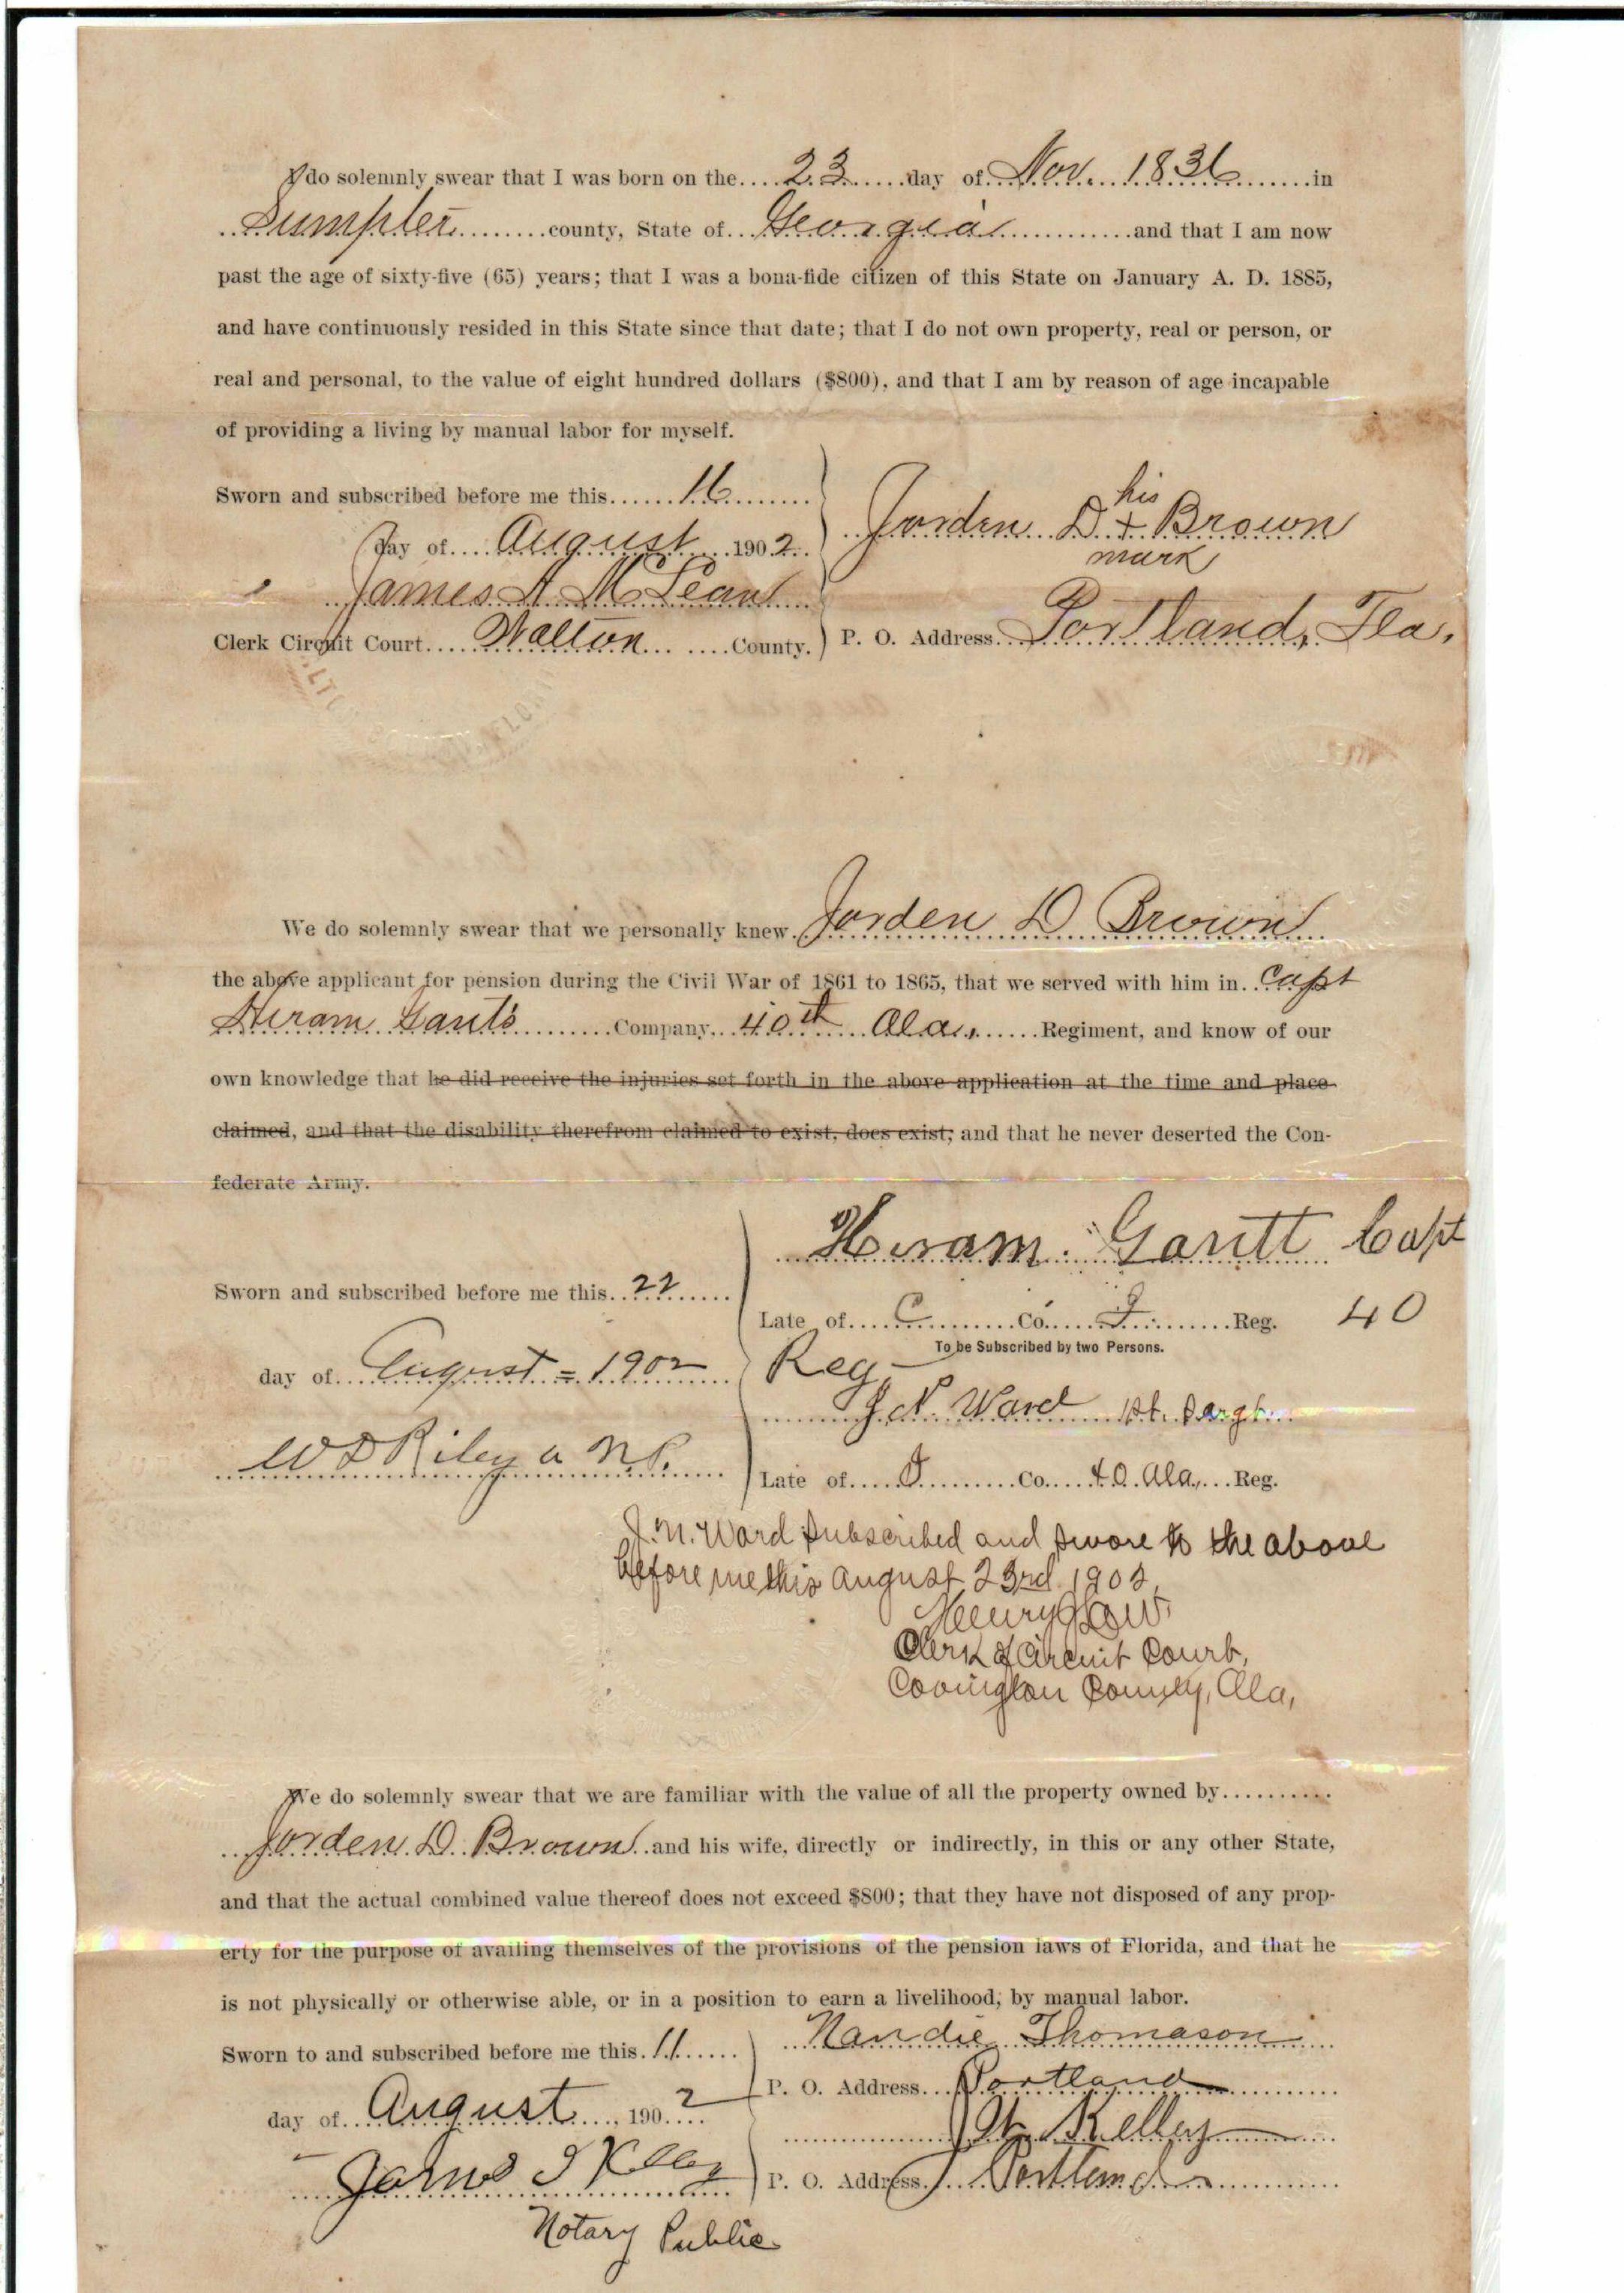 I do solemnly swear that I was born on the....23......day of..Nov. 1836.......in
Sumpter........county, State of..Georgia............and that I am now
past the age of sixty-five (65) years; that I was a bona-fide citizen of this State on January A. D. 1885,
and have continuously resided in this State since that date; that I do not own property, real or person, or
real and personal, to the value of eight hundred dollars ($800), and that I am by reason of age incapable
of providing a living by manual labor for myself.
Sworn and subscribed before me this......16........
day of....August...1902..
James A McLean
Clerk Circuit Court....Walton... ....County.
his
Jorden D + Brown
mark
P. O. Address..Portland, Fla.
We do solemnly swear that we personally knew Jorden D Brown
the above applicant for pension during the Civil War of 1861 to 1865, that we served with him in..Capt
Hiram Gant's.........Company...40th...Ala.,......Regiment, and know of our
own knowledge that he did receive the injuries set forth in the above application at the time and place
claimed, and that the disability therefrom claimed to exist, does exist; and that he never deserted the Con-
federate Army.
Hiram Gantt Capt
Sworn and subscribed before me this..22......
Late of....C.........Co.........Reg. 40
To be Subscribed by two Persons.
day of...August = 1902
Reg
J N. Ward 1st. Sargt.
W D Riley a N.P.
Late of..............Co....40.Ala,...Reg.
J. N. Ward subscribed and swore to the above
before me this August 23rd. 1902,
Henry
Clerk of Circuit Court,
Covington County, Ala,
We do solemnly swear that we are familiar with the value of all the property owned by..........
Jorden D. Brown..and his wife, directly or indirectly, in this or any other State,
and that the actual combined value thereof does not exceed $800; that they have not disposed of any prop-
erty for the purpose of availing themselves of the provisions of the pension laws of Florida, and that he
is not physically or otherwise able, or in a position to earn a livelihood, by manual labor.
Nandie Thomason
Sworn to and subscribed before me this.11......
P. O. Address...Portland
day of..August....., 1902
Kelley
James Kelley
P. O. Address....Portland
Notary Public